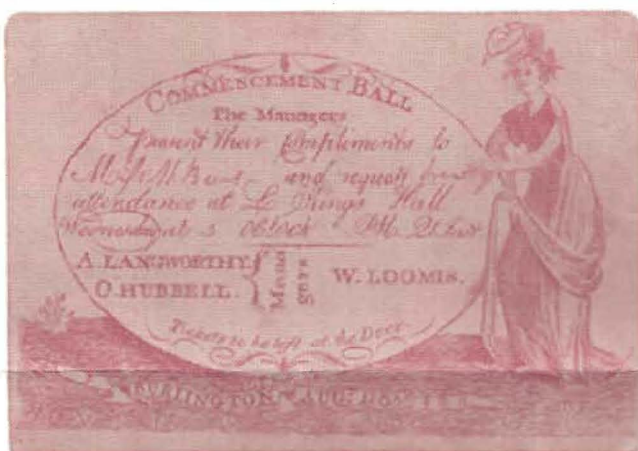 COMMENCEMENT BALL
The Managers
present their compliments to
and request
attendance at L Kings Hall
Wednesday at 5 oClock PM
A. LANGWORTHY.
O. HUBBELL.
Managers
W. LOOMIS.
Tickets to be left at the Door.
BURLINGTON